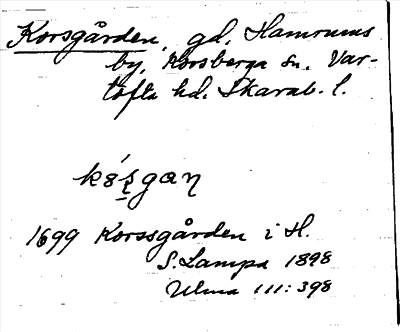 Korsgården, gd, Hamrums
by, Korsberga sn. Var-
tofta hd. Skarab. l.
1699 Korssgården i H.
S. Lampa 1898
Ulma 111:398